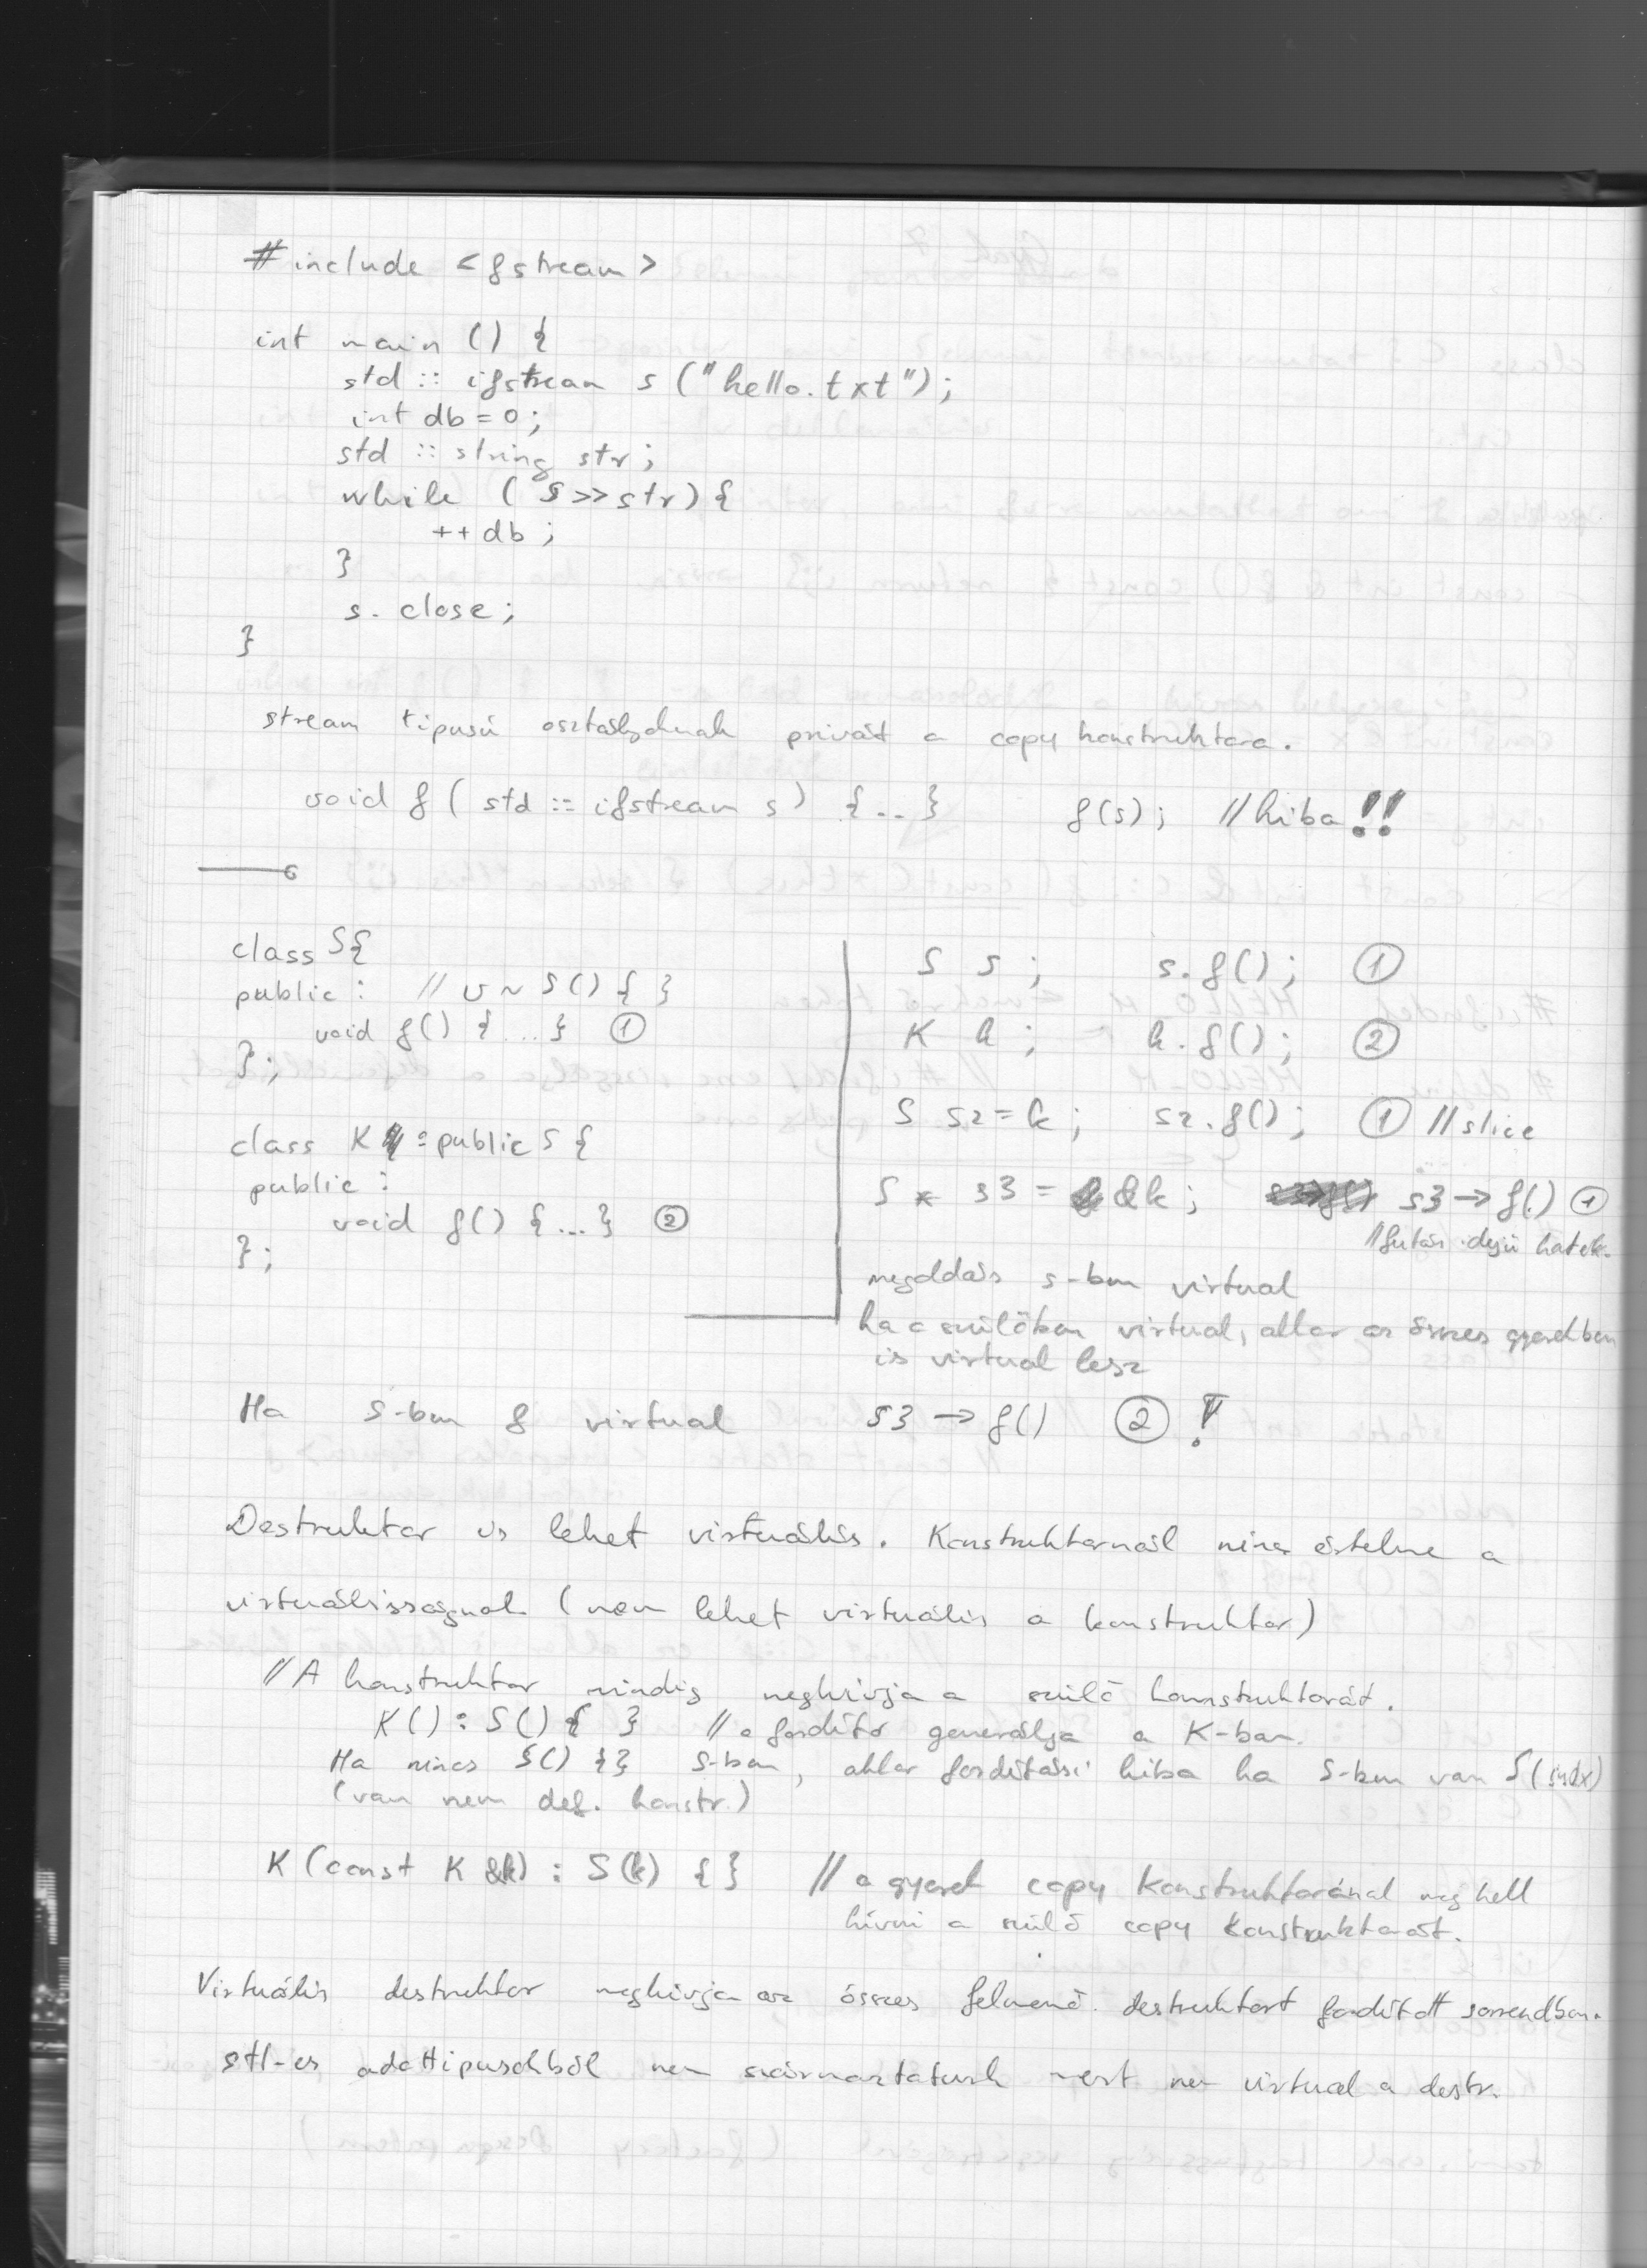 #include <fstream>
int main () {
std :: ifstream s ("hello.txt");
int db = 0;
std :: string str;
while ( s >> str) {
++db;
}
s. close;
}
stream tipusú osztályoknak privát a copy konstruktora.
void f ( std :: ifstream s) { .. } f(s); // hiba !!
class S{
public: // v ~ S() { }
void f() { ... } ①
};
class K : public S {
public:
void f() { ... } ②
};
S s ; s.f(); ①
K k ; k.f(); ②
S s2 = k ; s2.f(); ① // slice
S * s3 = &k ; s3 → f() ①
// futás idejű haték.
megoldás s-ben virtual
ha a szülőben virtual, akkor az összes gyerekben
is virtual lesz
Ha S-ben f virtual s3 → f() ② !
Destruktor is lehet virtuális. Konstruktornál nincs értelme a
virtuálisságnak (nem lehet virtuális a konstruktor)
// A konstruktor mindig meghívja a szülő konstruktorát.
K() : S() { } // a fordító generálja a K-ban.
Ha nincs S() {} S-ben, akkor fordítási hiba ha S-ben van S(
(van nem def. konstr.)
K (const K &k) : S(k) { } // a gyerek copy konstruktoránál meg kell
hívni a szülő copy konstruktorát.
Virtuális destruktor meghívja az összes felmenő destruktort fordított sorrendben.
stl-es adattipusokból nem származtatunk mert nem virtual a destr.